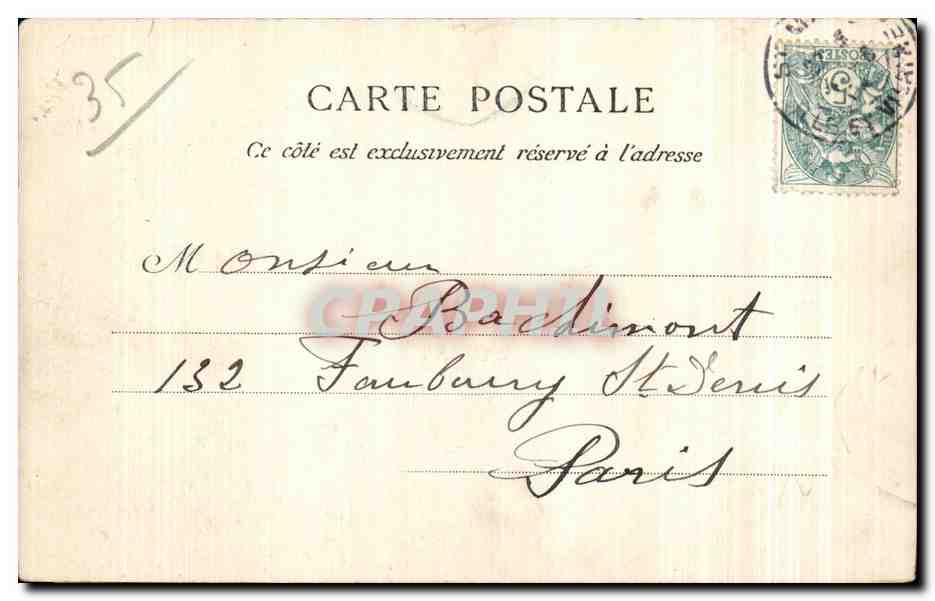 35
CARTE POSTALE
Ce côté est exclusivement réservé à l'adresse
POSTES
5
Monsieur
CPAPHIL
Bachimont
132 Faubourg St Denis
Paris